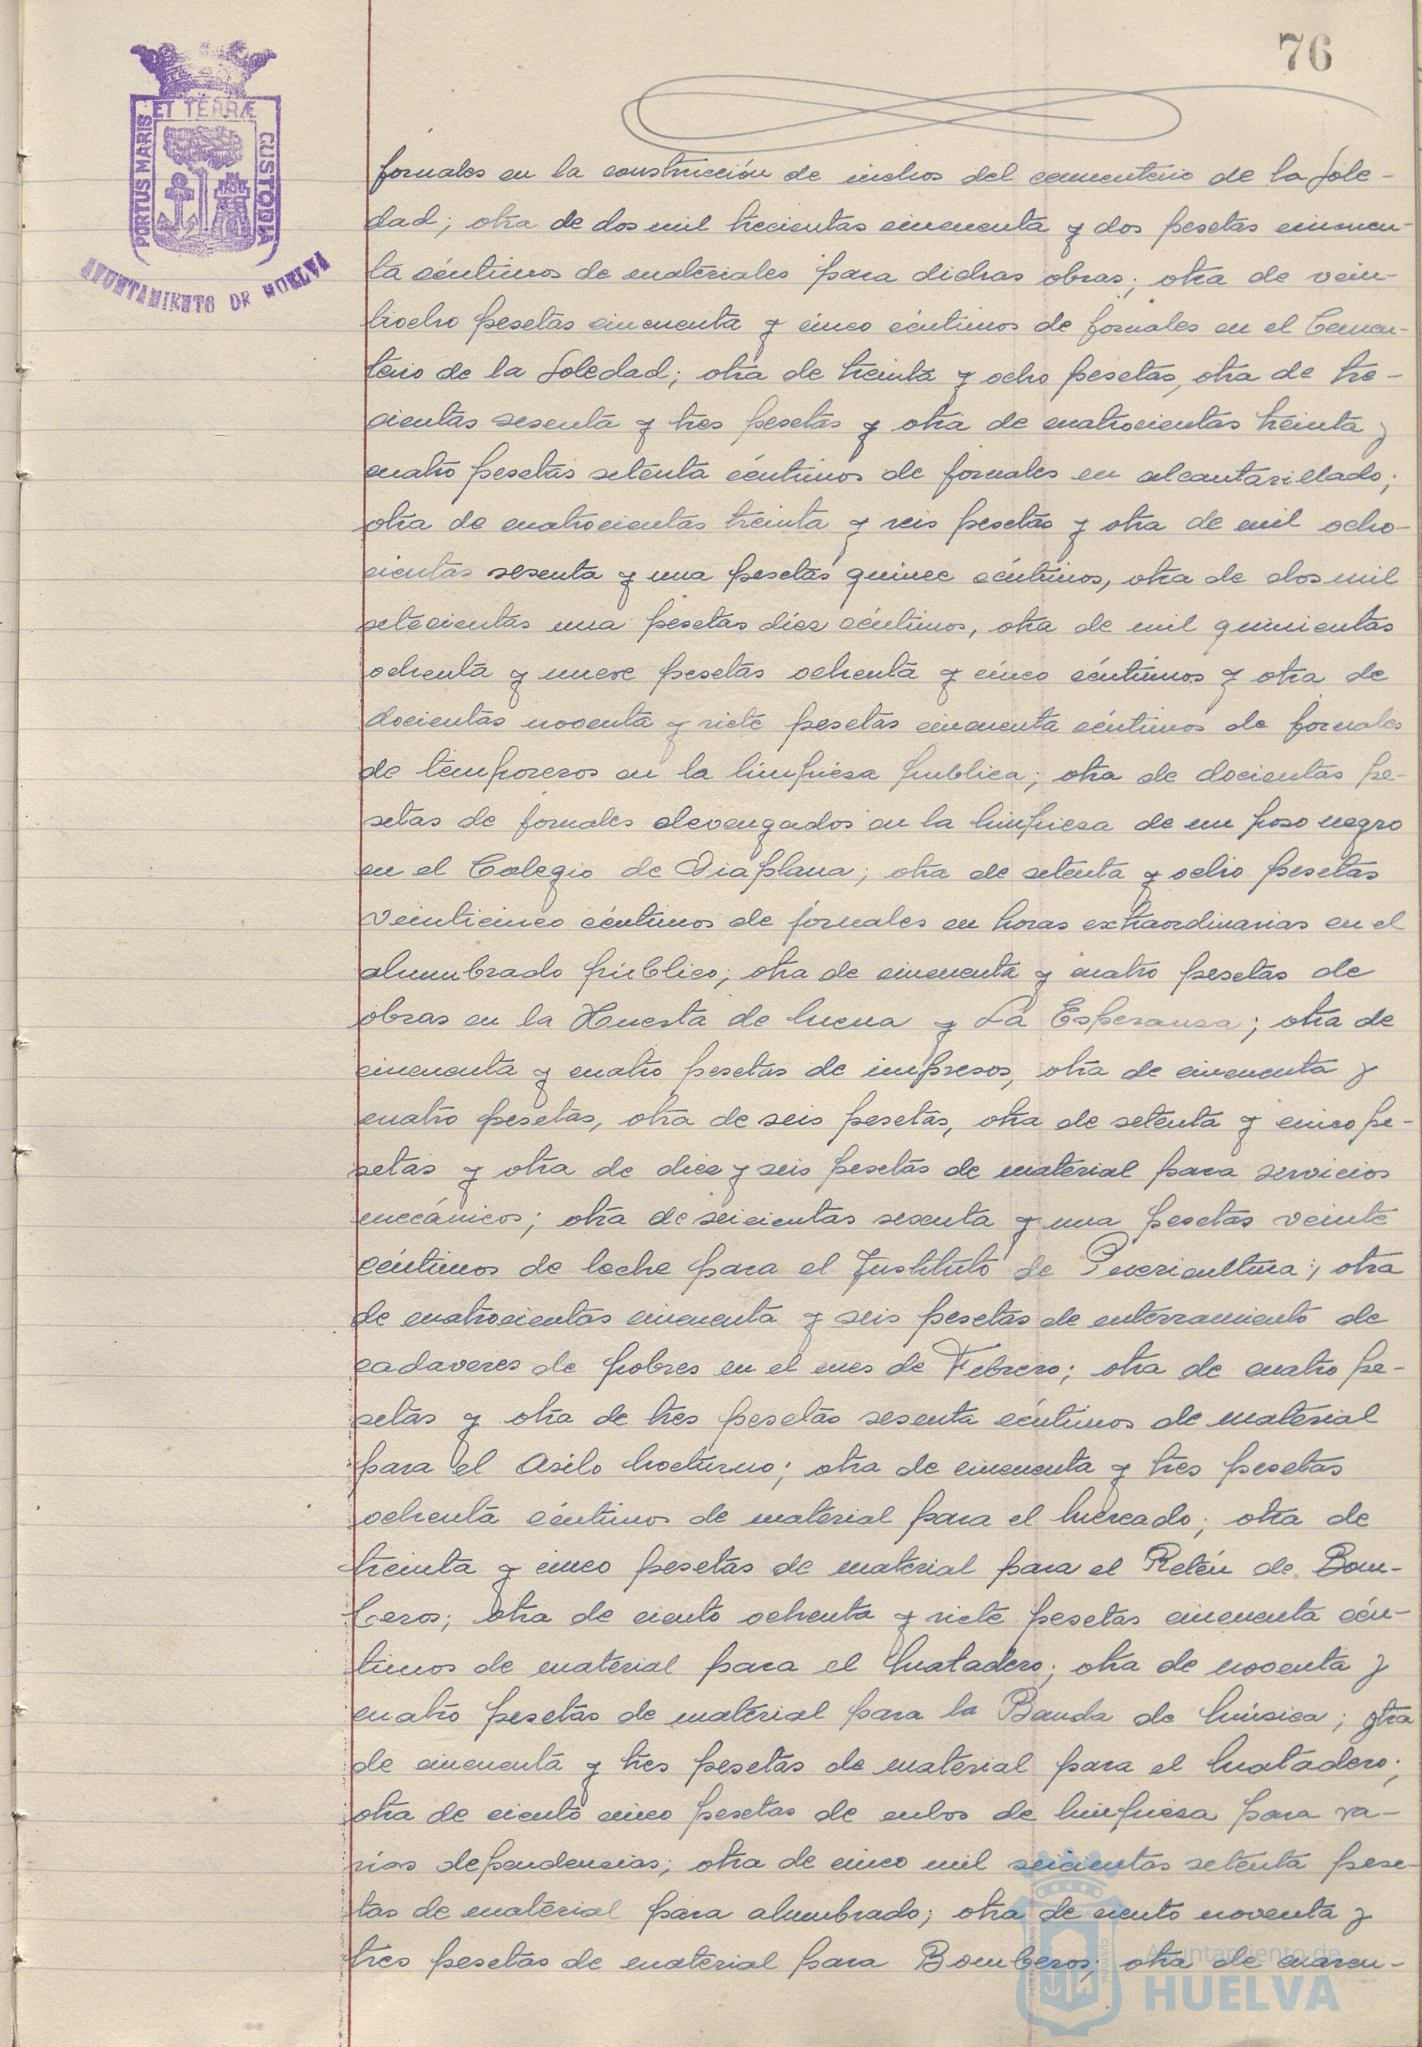 76
PORTUS MARIS ET TERRÆ CUSTODIA
AYUNTAMIENTO DE HUELVA
jornales en la construcción de nichos del cementerio de la Sole-
dad; otra de dos mil trecientas cincuenta y dos pesetas cincuen-
ta céntimos de materiales para dichas obras; otra de vein-
tiocho pesetas cincuenta y cinco céntimos de jornales en el Cemen-
terio de la Soledad; otra de treinta y ocho pesetas, otra de tre-
cientas sesenta y tres pesetas y otra de cuatrocientas treinta y
cuatro pesetas setenta céntimos de jornales en alcantarillado;
otra de cuatrocientas treinta y seis pesetas y otra de mil ocho-
cientas sesenta y una pesetas quince céntimos, otra de dos mil
setecientas una pesetas diez céntimos, otra de mil quinientas
ochenta y nueve pesetas ochenta y cinco céntimos y otra de
docientas noventa y siete pesetas cincuenta céntimos de jornales
de temporeros en la limpieza publica; otra de docientas pe-
setas de jornales devengados en la limpieza de un poso negro
en el Colegio de Diaplana; otra de setenta y ocho pesetas
veinticinco céntimos de jornales en horas extraordinarias en el
alumbrado público; otra de cincuenta y cuatro pesetas de
obras en la Huerta de Mena y La Esperanza; otra de
cincuenta y cuatro pesetas de impresos, otra de cincuenta y
cuatro pesetas, otra de seis pesetas, otra de setenta y cinco pe-
setas y otra de diez y seis pesetas de material para servicios
mecánicos; otra de seicientas sesenta y una pesetas veinte
céntimos de leche para el Instituto de Puericultura; otra
de cuatrocientas cincuenta y seis pesetas de enterramiento de
cadaveres de pobres en el mes de Febrero; otra de cuatro pe-
setas y otra de tres pesetas sesenta céntimos de material
para el Asilo Nocturno; otra de cincuenta y tres pesetas
ochenta céntimos de material para el Mercado; otra de
treinta y cinco pesetas de material para el Retén de Bom-
beros; otra de ciento ochenta y siete pesetas cincuenta cén-
timos de material para el Matadero; otra de noventa y
cuatro pesetas de material para la Banda de Música; otra
de cincuenta y tres pesetas de material para el Matadero;
otra de ciento cinco pesetas de cubos de limpieza para va-
rias dependencias; otra de cinco mil seicientas setenta pese-
tas de material para alumbrado; otra de ciento noventa y
tres pesetas de material para Bomberos; otra de cuaren-
Ayuntamiento de
HUELVA